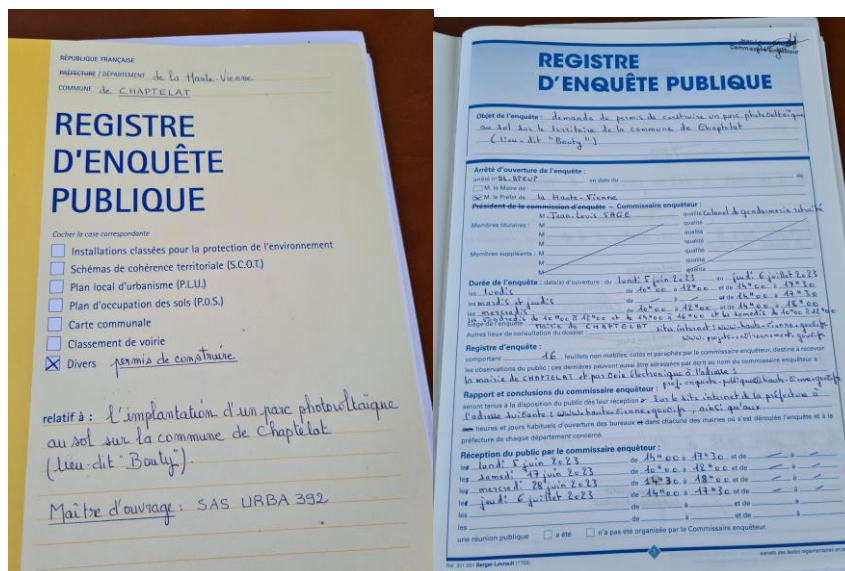 RÉPUBLIQUE FRANÇAISE
PRÉFECTURE / DÉPARTEMENT de la Haute-Vienne
COMMUNE de CHAPTELAT
REGISTRE
D'ENQUÊTE
PUBLIQUE
Cocher la case correspondante
Installations classées pour la protection de l'environnement
Schémas de cohérence territoriale (S.C.O.T.)
Plan local d'urbanisme (P.L.U.)
Plan d'occupation des sols (P.O.S.)
Carte communale
Classement de voirie
Divers permis de construire
relatif à : l'implantation d'un parc photovoltaïque
au sol sur la commune de Chaptelat
(lieu-dit "Bouty").
Maître d'ouvrage : SAS URBA 392
REGISTRE
D'ENQUÊTE PUBLIQUE
Objet de l'enquête : demande de permis de construire un parc photovoltaïque
au sol sur le territoire de la commune de Chaptelat
(lieu-dit "Bouty")
Arrêté d'ouverture de l'enquête :
arrêté n° DL.BPEUP en date du de
M. le Maire de
M. le Préfet de la Haute-Vienne
Président de la commission d'enquête – Commissaire enquêteur :
M. Jean-Louis SAGE qualité Colonel de gendarmerie retraité
Membres titulaires : M qualité
M qualité
M qualité
Membres suppléants : M qualité
M qualité
M qualité
Durée de l'enquête : date(s) d'ouverture : du lundi 5 juin 2023 au jeudi 6 juillet 2023
les lundis de 10H00 à 12H00 et de 14H00 à 17H30
les mardis et jeudis de à et de 14H00 à 17H30
les mercredis de à et de 14H00 à 18H00
les vendredis de 10H00 à 12H00 et de 14H00 à 16H00 et les samedis de 10H00 à 12H00
Siège de l'enquête : Mairie de CHAPTELAT site internet : www.haute-vienne.gouv.fr
Autres lieux de consultation du dossier : www.projets-environnement.gouv.fr
Registre d'enquête :
comportant 16 feuillets non mobiles, cotés et paraphés par le commissaire enquêteur, destiné à recevoir
les observations du public ; ces dernières peuvent aussi être adressées par écrit au nom du commissaire enquêteur à :
la mairie de CHAPTELAT et par voie électronique à l'adresse :
Rapport et conclusions du commissaire enquêteur : pref-enquete-publique@haute-vienne.gouv.fr
seront tenus à la disposition du public dès leur réception sur le site internet de la préfecture à
l'adresse suivante : www.haute-vienne.gouv.fr, ainsi qu'aux
heures et jours habituels d'ouverture des bureaux et dans chacune des mairies où s'est déroulée l'enquête et à la
préfecture de chaque département concerné.
Réception du public par le commissaire enquêteur :
les lundi 5 juin 2023 de 14H00 à 17H30 et de à
les samedi 17 juin 2023 de 10H00 à 12H00 et de à
les mercredi 28 juin 2023 de 14H30 à 18H00 et de à
les jeudi 6 juillet 2023 de 14H00 à 17H30 et de à
les de à et de à
les de à et de à
une réunion publique a été n'a pas été organisée par le Commissaire enquêteur.
1
Berger-Levrault